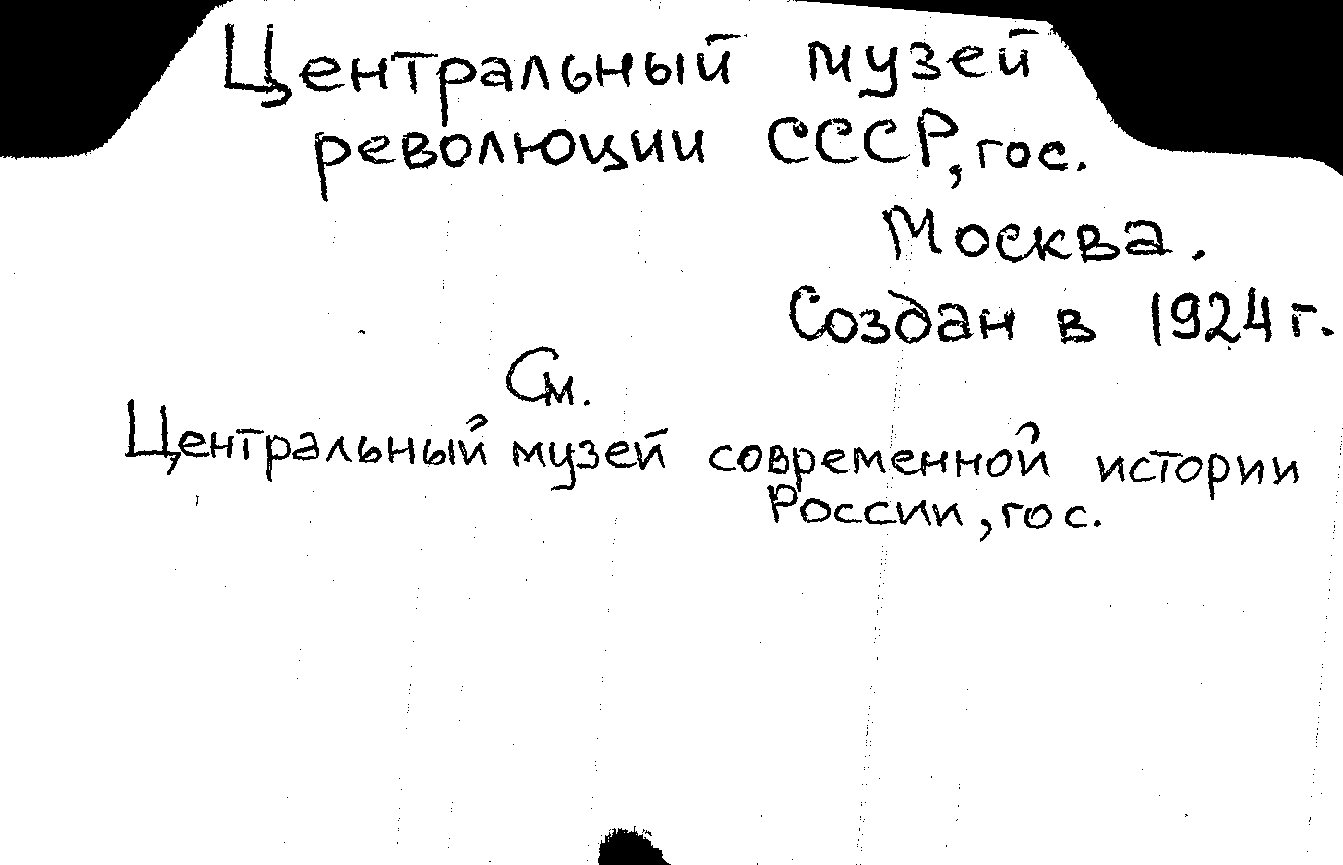 Центральный музей
революции СССР, гос.
Москва.
Создан в 1924 г.
См.
Центральный музей современной истории
России, гос.